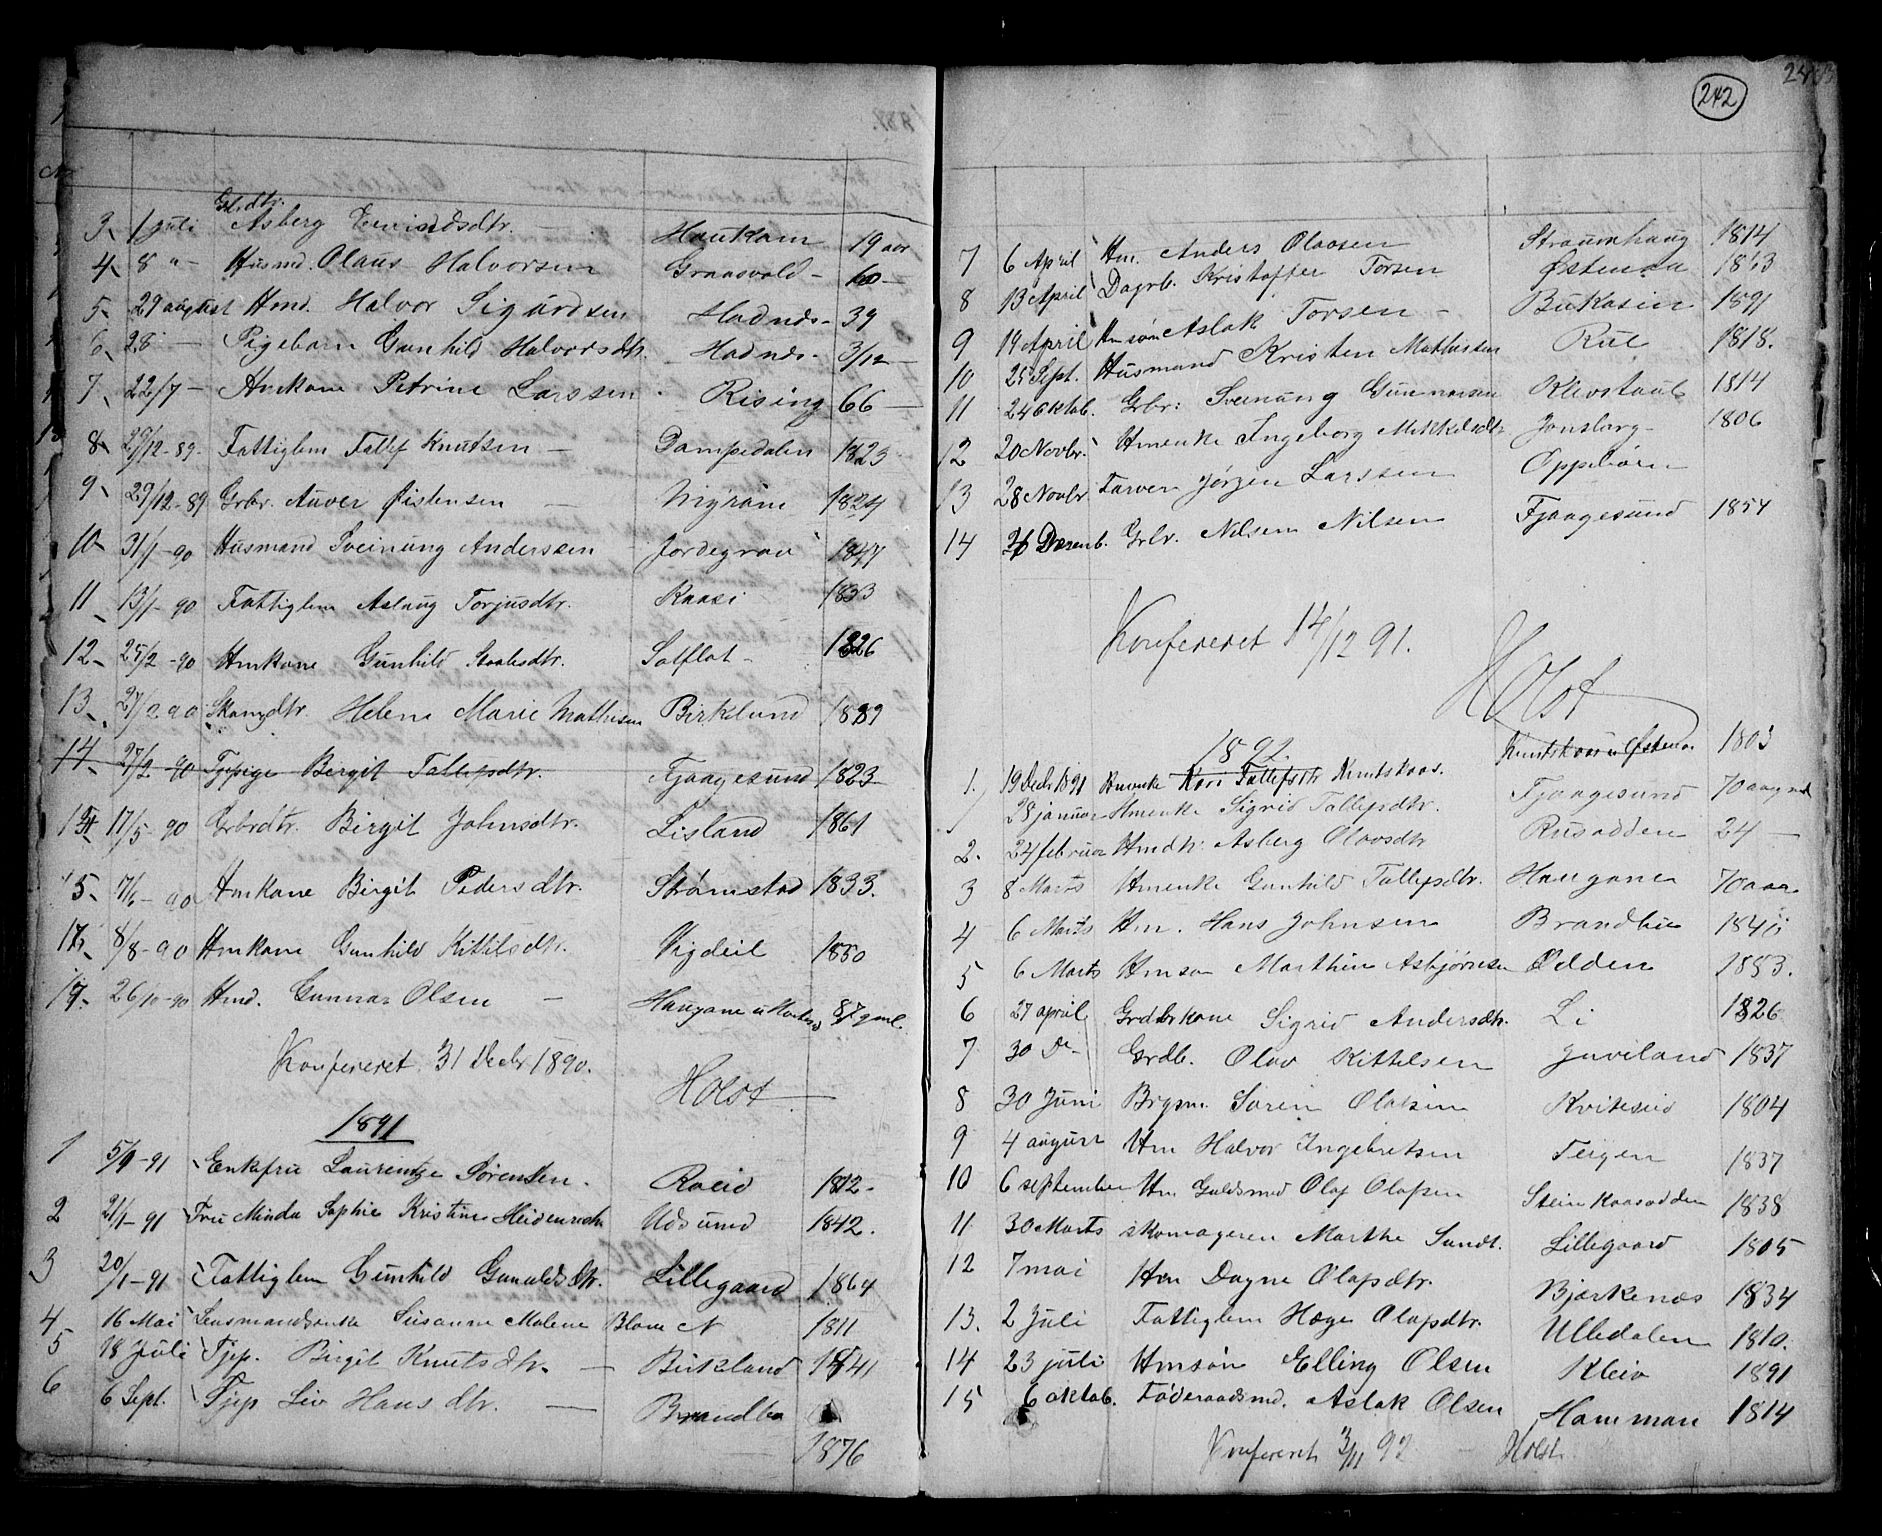 3 1 juli Grb.dtr. Asberg Eivindsdtr. — Haukom 19 aar
4 8 " - Husmd. Olaus Halvorsen Graasvold - 60 —
5 29 august Hmd. Halvor Sigurdsen Hadnds- 39
6 28 — Pigebarn Gunhild Halvorsdtr. Hadnds- 3/12 —
7 22/7 — Hmkone Petrine Larssen Rising 66 —
8 29/12-89- Fattiglem Tallef Knutsen — Dampedalen 1823
9 29/12-89 Grbr. Auver Øistensen — 1824
10 31/1-90 Husmand Sveinung Anderssen Jordegrav 1847
11 13/1-90 Fattiglem Aslaug Torjusdtr. Kaasi 1833
12 25/2-90 Hmkone Gunhild Solflot - 1826
13 27/2 90 Helene Marie Mathisen Birklund 1889
14 27/2 90 Tjpige Bergit Tallefsdtr. Fjaagesund 1823
14 17/5-90 Grbrdtr. Birgit Johnsdtr. Lisland 1861
15 7/6-90 Hmkone Birgit Pedersdtr. Strømstad 1833.
8/8-90 Hmkone Gunhild Kittilsdtr. Vigdeil 1850
17 26/10-90 Hmd. Gunnar Olsen — Haugane u 87 gml.
Konfereret 31 Decbr 1890.
Holst
1891
1 5/1-91 Enkefru Laurentze Sørensen. Roeid 1812-
2 21/1-91 Fru Minda Sophie Kristine Udsund 1842.
3 20/1-91 Fattiglem Gunhild Gunuldsdtr. Lillegaard 1864
4 16 Mai Lensmandsenke Susanne Malene Blom N 1811
5 18 Juli Tjp. Birgit Knutsdtr. — Birkland 1841
6 6 Sept. Tjp Liv Hansdtr. — Brandbo
1876
242
7 6 April Hm. Anders Olavsen Straumhaug 1814
8 13 April Dagrb. Kristoffer Torsen Østenaa 1813
9 19 April Hmsøn Aslak Torsen - Bukasin 1891
10 25 Sept. Husmand Kristen Mathisen Rue 1818.
11 24 Oktob. Grbr: Sveinung Gunnarsen Klevstaul 1814
12 20 Novbr. Hmenke Ingeborg Mikkelsdtr Jonsborg 1806
13 28 Novbr Farver Jørgen Larssen Oppebøen
14 Decemb. Grbr. Nilsen Nilsen Fjaagesund 1854
Konfereret 14/12 91.
Holst
1892.
1. 19 Decbr 1891 Hmenke Kari Tallefsdtr Knutskaas. Knutskaas u Østenaa 1803
28 januar Hmenke Sigrid Tallefsdtr. Fjaagesund 70 aar gml
2. 24 februar Hmdtr. Asberg Olavsdtr Rusodden 24 —
3 8 Marts Hmenke Gunhild Tallefsdtr. Haugane 70 aar
4 6 Marts Hm. Hans Johnsen Brandlie
5 6 Marts Hmsøn Marthin Asbjørnsen Odden 1853.
6 27 april Grdbrkone Sigrid Andersdtr. Li 1826
7 30 Do- Grdb. Olav Kittelsen Juveland 1837
8 30 Juni Brgsm. Søren Olavsen Kviteseid 1804
9 4 august Hm Halvor Ingebretsen Teigen 1837
10 6 september Hm Guldsmed Olaf Olafsen Steinkaasodden 1838
11 30 Marts skomageren Marthe Sundt. Lillegaard 1805
12 7 mai Hm Dagne Olafsdtr. Bjørkenes 1834
13. 2 Juli Fattiglem Hæge Olafsdtr. Ulledalen 1810.
14 23 juli Hmsøn Elling Olsen Kleiv 1891
15 6 oktob. Føderaadsmd. Aslak Olsen Hamman 1814
Konfereret 3/11 92 Holst.